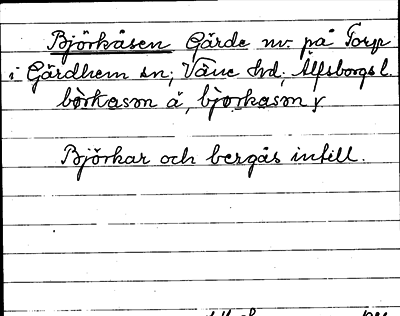 Björkåsen Gärde nv. på Torp
i Gärdhem sn; Väne hd; Älfsborgs l.
börkasən å, bjorkasən y
Björkar och bergås intill.